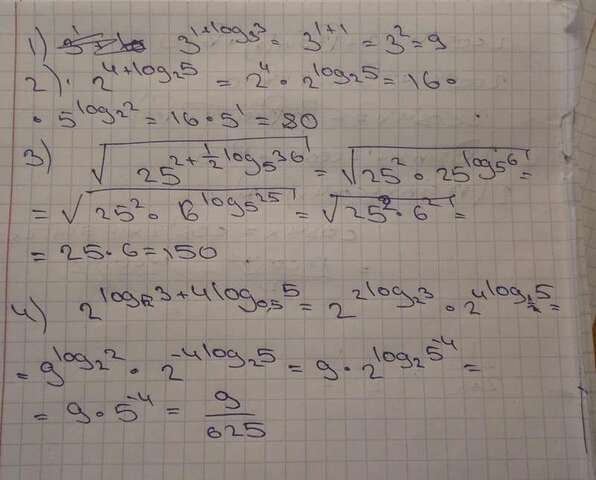 1) 3^(1+log₃3) = 3^(1+1) = 3² = 9
2) · 2^(4+log₂5) = 2⁴ · 2^(log₂5) = 16 ·
· 5^(log₂2) = 16 · 5¹ = 80
3) √(25^(2+½log₅36)) = √(25² · 25^(log₅6)) =
= √(25² · 6^(log₅25)) = √(25² · 6²) =
= 25 · 6 = 150
4) 2^(log_√2 3 + 4log_0,5 5) = 2^(2log₂3) · 2^(4log_½ 5) =
= 9^(log₂2) · 2^(-4log₂5) = 9 · 2^(log₂5⁻⁴) =
= 9 · 5⁻⁴ = 9/625